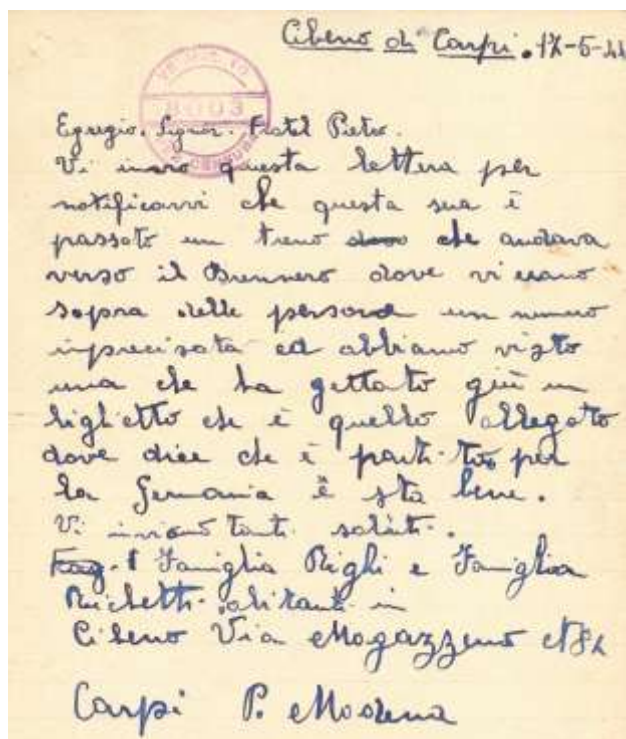 Cibeno di Carpi. 17-5-44
8003
Egregio. Signor. Fratel Pietro.
Vi invio questa lettera per
notificarvi che questa sera è
passato un treno che andava
verso il Brennero dove vi erano
sopra delle persone un numero
inprecisata ed abbiamo visto
una che ha gettato giù un
biglietto che è quello allegato
dove dice che è partito per
la Germania è sta bene.
Vi inviano tanti saluti.
Famiglia Righi e Famiglia
Richetti abitanti in
Cibeno Via Magazzeno N
Carpi P. Modena